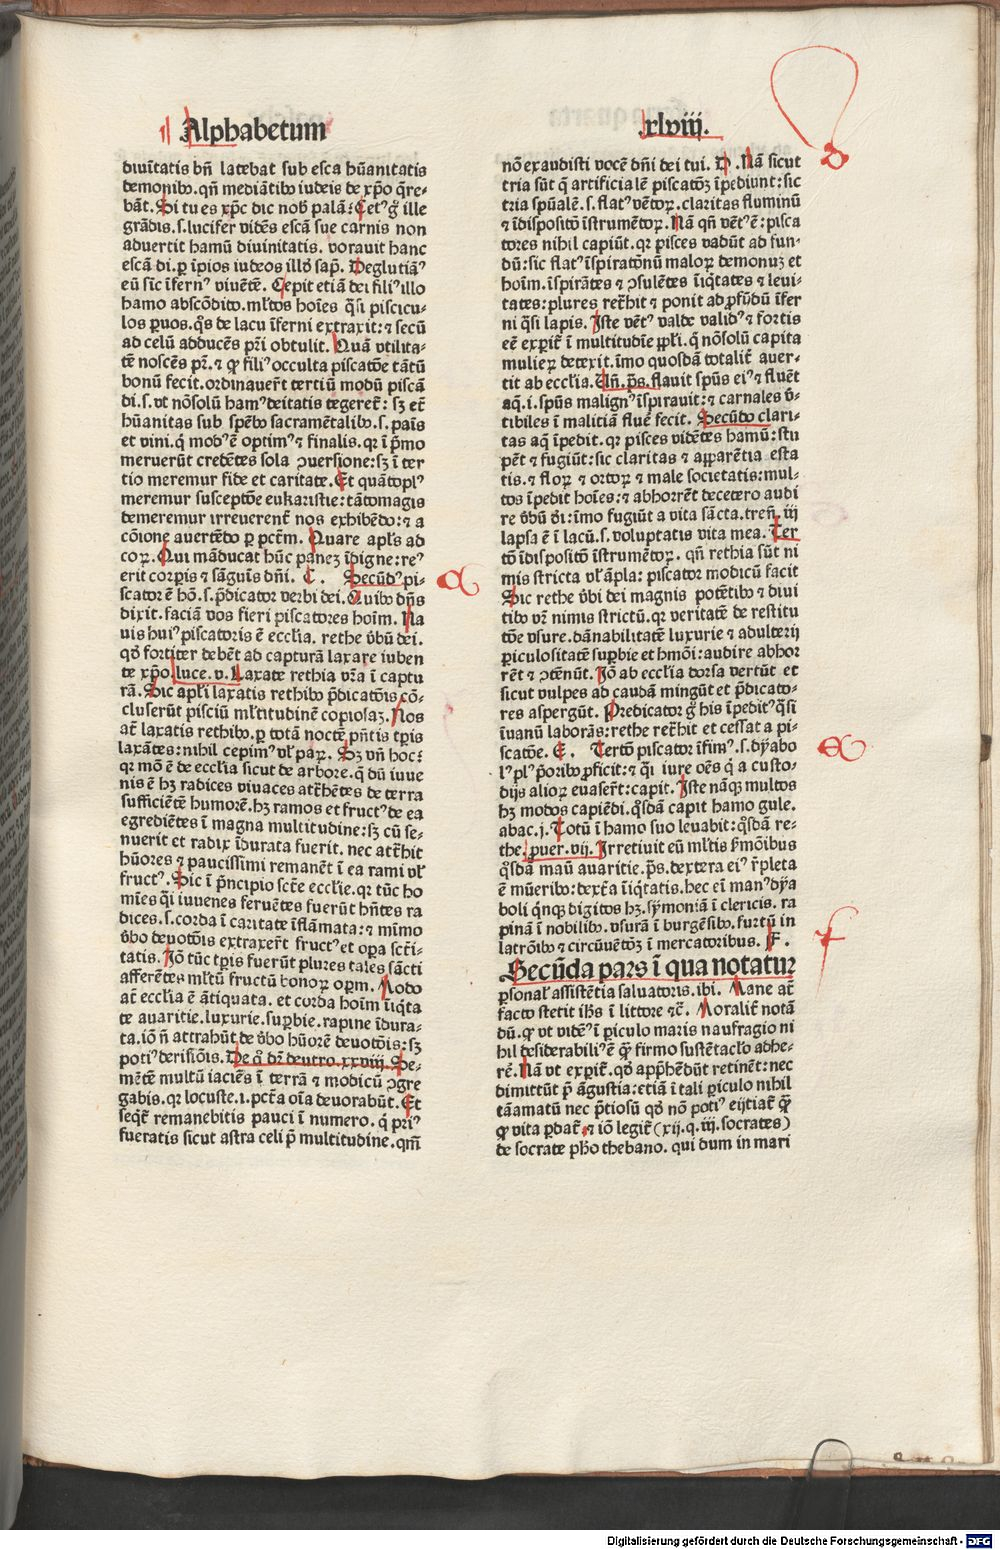 Alphabetum
.xlviij.
diuītatis bn̄ latebat sub esca hūanitatis
demonibꝰ. qn̄ mediātibꝰ iudeis de xp̄o q̄re-
bāt. Si tu es xp̄c dic nob̄ palā: Cetꝰ g̊ ille
grādis. s. lucifer vidēs escā sue carnis non
aduertit hamū diuinitatis. vorauit hanc
escā di. ꝑ īpios iudeos illd̓ sap̄. Deglutiāꝰ
eū sic īfernꝰ viuētē. Cepit etiā dei filiꝰ illo
hamo abscōdito. ml̓tos hoīes q̄si piscicu-
los ꝑuos. q̄s de lacu īferni extraxit: ⁊ secū
ad celū adducēs pr̄i obtulit. Quā vtilita-
tē noscēs pr̄. ⁊ ꝙ filiꝰ occulta piscatōe tātū
bonū fecit. ordinauer̄t tertiū modū piscā
di. s. vt nōsolū hamꝰ deitatis tegeret̄: sꝫ et̄
hūanitas sub spēbꝰ sacramētalibꝰ. s. pais
et vini. q̄ modꝰ ē optimꝰ ⁊ finalis. qr ī p̄mo
meruerūt credētes sola ꝯuersione: sꝫ ī ter
tio meremur fide et caritate. Et quātoplꝰ
meremur susceptōe eukaristie: tātomagis
demeremur irreuerent̄ nos exhibēdo: ⁊ a
cōione auertēdo ꝑ pctm̄. Quare apl̓s ad
coꝝ. Qui māducat hūc paneꝫ īdigne: reꝰ
erit corpis ⁊ sāguis dn̄i. C. Secūdꝰ pi-
scator ē hō. s. p̄dicator verbi dei. Quibꝰ dn̄s
dixit. faciā vos fieri piscatores hoīm. Na
uis huiꝰ piscatoris ē ecclīa. rethe v̓bū dei.
qd̓ fortiter debēt ad capturā laxare iuben
te xp̄o. luce. v. Laxate rethia vr̄a ī captu
rā. Sic apl̓i laxatis rethibꝰ p̄dicatōis cō-
cluserūt pisciū ml̓titudinē copiosaꝫ. Nos
at̄ laxatis rethibꝰ. ꝑ totā noctē pn̄tis tꝑis
laxātes: nihil cepimꝰ vl̓ paꝝ. Sꝫ vn̄ hoc:
qr mō ē de ecclīa sicut de arbore. q̄ dū iuue
nis ē hꝫ radices viuaces atr̄hētes de terra
sufficiētē humorē. hꝫ ramos et fructꝰ de ea
egrediētes ī magna multitudine: sꝫ cū se-
nuerit et radix īdurata fuerit. nec atr̄hit
hūores ⁊ paucissimi remanēt ī ea rami vl̓
fructꝰ. Sic ī p̄ncipio scte̅ ecclie. qr tūc ho
mīes q̄i iuuenes feruētes fuerūt hn̄tes ra
dices. s. corda ī caritate īflāmata: ⁊ mīmo
v̓bo deuotōis extraxer̄t fructꝰ et oꝑa sct̄i-
tatis. Iō tūc tꝑis fuerūt plures tales sācti
afferētes ml̓tū fructū bonoꝝ oꝑm. Modo
at̄ ecclīa ē ātiquata. et corda hoīm īiq̄ta
te auaritie. luxurie. suꝑbie. rapine īdura-
ta. iō n̄ attrahūt de v̓bo hūorē deuotōis: sꝫ
potiꝰ derisiōis. De q̊ dr̄ deutro. xxviij. Se-
mētē multū iaciēs ī terrā ⁊ modicū ꝯgre
gabis. qr locuste. i. pctā oīa deuorabūt. Et
seqt̄ remanebitis pauci ī numero. q̄ priꝰ
fueratis sicut astra celi p̄ multitudine. qm̄
nō exaudisti vocē dn̄i dei tui. D. Nā sicut
tria sūt q̄ artificialē piscatōꝫ īpediunt: sic
tria spūalē. s. flatꝰ vētoꝝ. claritas fluminū
⁊ īdispositō īstrumētoꝝ. Nā qn̄ vētꝰ ē: pisca
tores nihil capiūt. qr pisces vadūt ad fun-
dū: sic flatꝰ īspiratōnū maloꝝ demonuꝫ et
hoīm. īspirātes ⁊ ꝯsulētes īiq̄tates ⁊ leui-
tates: plures retr̄hit ⁊ ponit ad ꝓfūdū īfer
ni q̄si lapis. Iste vētꝰ valde validꝰ ⁊ fortis
eē expit̄ ī multitudīe ppl̓i. q̄ nōsolū capita
mulieꝝ detexit. īmo quosdā totalit̄ auer-
tit ab ecclīa. Un̄. ps̄. flauit spūs eiꝰ ⁊ fluēt
aq̄. i. spūs malignꝰ īspirauit: ⁊ carnales v̓-
tibiles ī malitiā fluē fecit. Secūdo clari-
tas aq̄ īpedit. qr pisces vidētes hamū: stu
pēt ⁊ fugiūt: sic claritas ⁊ apparētia esta
tis. ⁊ floꝝ ⁊ ortoꝝ ⁊ male societatis: mul-
tos īpedit hoīes: ⁊ abhorrēt decetero audi
re v̓bū di̓: īmo fugiūt a vita sācta. tren̄. iij
lapsa ē ī lacū. s. voluptatis vita mea. Ter
tō īdispositō īstrumētoꝝ. qn̄ rethia sūt ni
mis stricta vl̓ āpla: piscator modicū facit
Sic rethe v̓bi dei magnis potētibꝰ ⁊ diui
tibꝰ vr̄ nimis strictū. qr veritatē de restitu
tōe vsure. dānabilitatē luxurie ⁊ adulterij
ꝑiculositatē suꝑbie et hmōi: audire abhor
rēt ⁊ ꝯtēnūt. Iō ab ecclīa dorsa vertūt et
sicut vulpes ad caudā mingūt et p̄dicato-
res aspergūt. Predicator g̊ his īpeditꝰ q̄si
īuanū laborās: rethe retr̄hit et cessat a pi-
scatōe. E. Tertō piscator īfimꝰ. s. dyabo
lꝰ plꝰ p̄oribꝰ ꝓficit: ⁊ q̄i iure oēs q̄ a custo-
dijs alioꝝ euaser̄t: capit. Iste nāqꝫ multos
hꝫ modos capiēdi. q̄sdā capit hamo gule.
abac. j. Totū ī hamo suo leuabit: q̄sdā re-
the. ꝓuer. vij. Irretiuit eū ml̓tis s̄mōibus
q̄sdā manū auaritie. ps̄. dextera eiꝰ r̄pleta
ē mūeribꝰ: dextr̄a īiq̄tatis. hec eī manꝰ dya
boli q̄nqꝫ digitos hꝫ. symoniā ī clericis. ra
pinā ī nobilibꝰ. vsurā ī burgēsibꝰ. furtū in
latrōibꝰ ⁊ circūuētōꝫ ī mercatoribus. F.
Secūda pars ī qua notatur
ꝑsonal̓ assistētia saluatoris. ibi. Mane at̄
facto stetit ih̄s ī littore ⁊c̄. Moralit̄ notā
dū. ꝙ vt vidēꝰ ī ꝑiculo maris naufragio ni
hil desiderabiliꝰ ē q̄ȝ firmo sustētaclo̓ adhe-
rē. Nā vt expit̄. qd̓ app̄hēdūt retinēt: nec
dimittūt p̄ āgustia: etiā ī tali ꝑiculo nihil
tāamatū nec p̄tiosū qd̓ nō potiꝰ eijtiat̄ q̄ȝ
ꝙ vita ꝑdat̄. ⁊ iō legit̄ (xij. q. iij. socrates)
de socrate ph̓o thebano. qui dum in mari
D
C
E
F
Digitalisierung gefördert durch die Deutsche Forschungsgemeinschaft - DFG